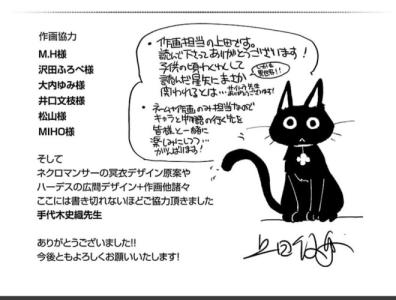 作画協力
M.H様
沢田ふろぺ様
大内ゆみ様
井口文枝様
松山様
MIHO様
そして
ネクロマンサーの冥衣デザイン原案や
ハーデスの広間デザイン+作画他諸々
ここには書き切れないほどご協力頂きました
手代木史織先生
ありがとうございました!!
今後ともよろしくお願いいたします!
・作画担当の上田です。
読んで下さってありがとうございます!
子供の頃わくわくして
読んだ星矢にまさか
関われるとは…
・ネームや作画のみ担当なので
キャラと物語の行く先を
皆様と一緒に
楽しみにしつつ…
がんばります!